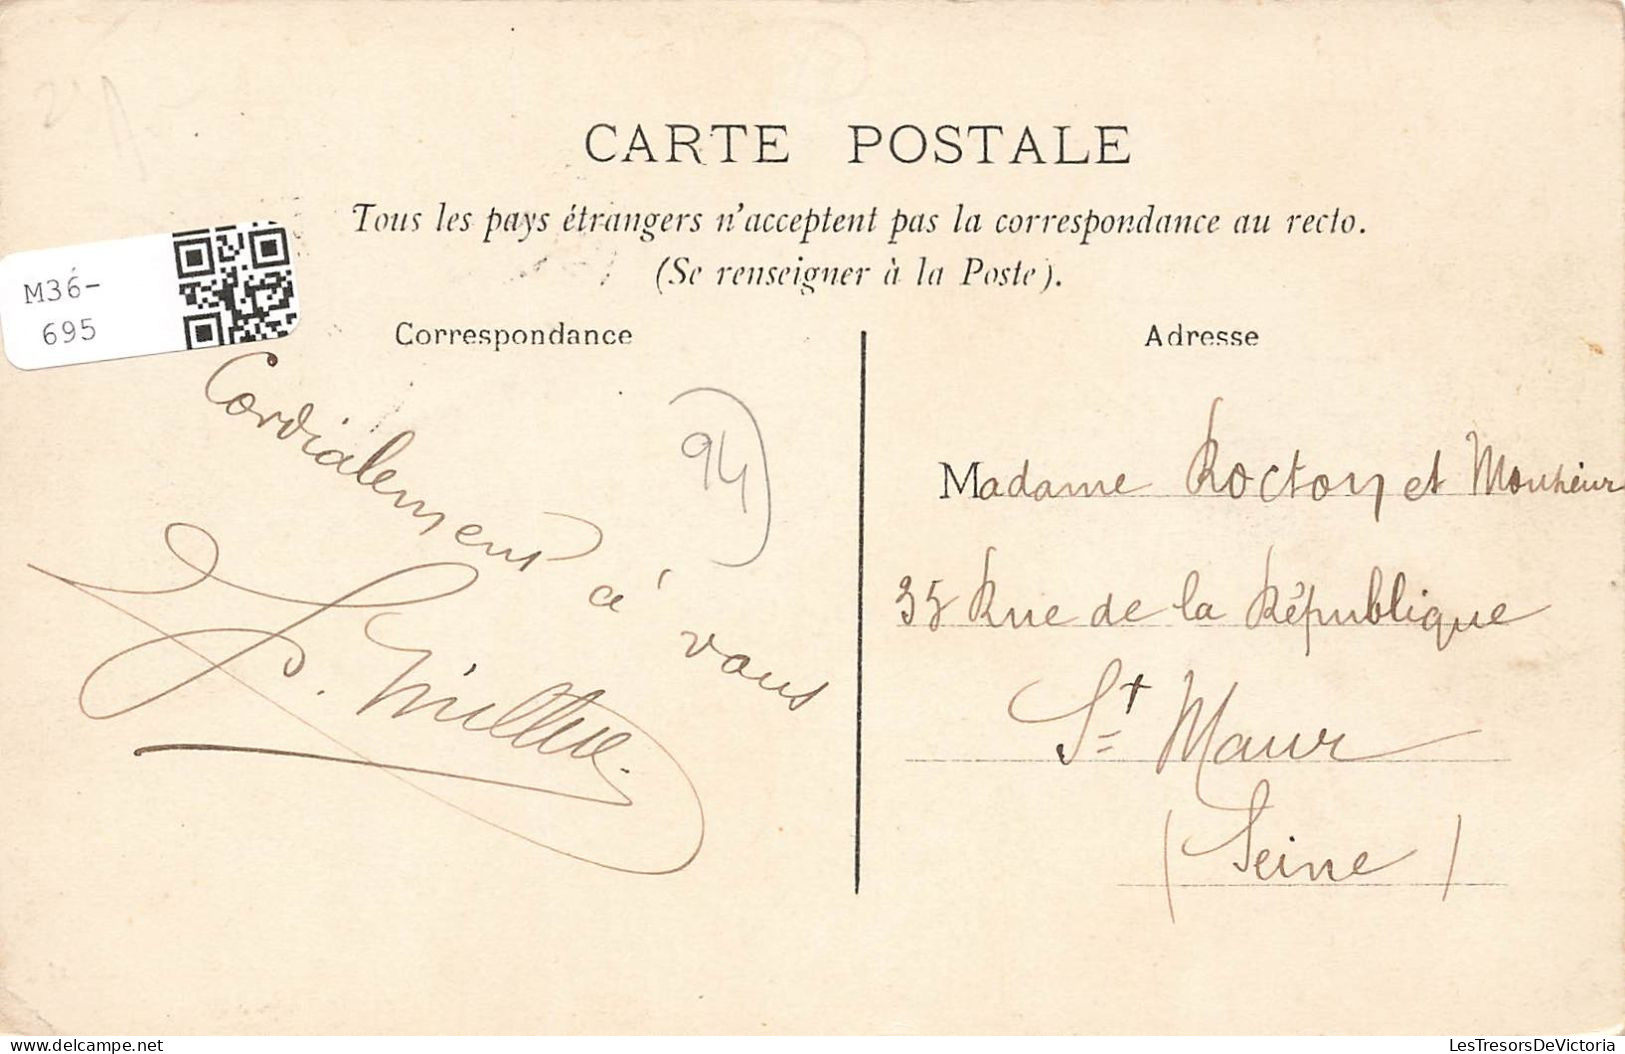 CARTE POSTALE
Tous les pays étrangers n'acceptent pas la correspondance au recto.
(Se renseigner à la Poste).
M36-
695
Correspondance
Cordialement à vous
94
Adresse
Madame Rocton et Monsieur
35 Rue de la République
St Maur
(Seine)
delcampe.net
LesTresorsDeVictoria